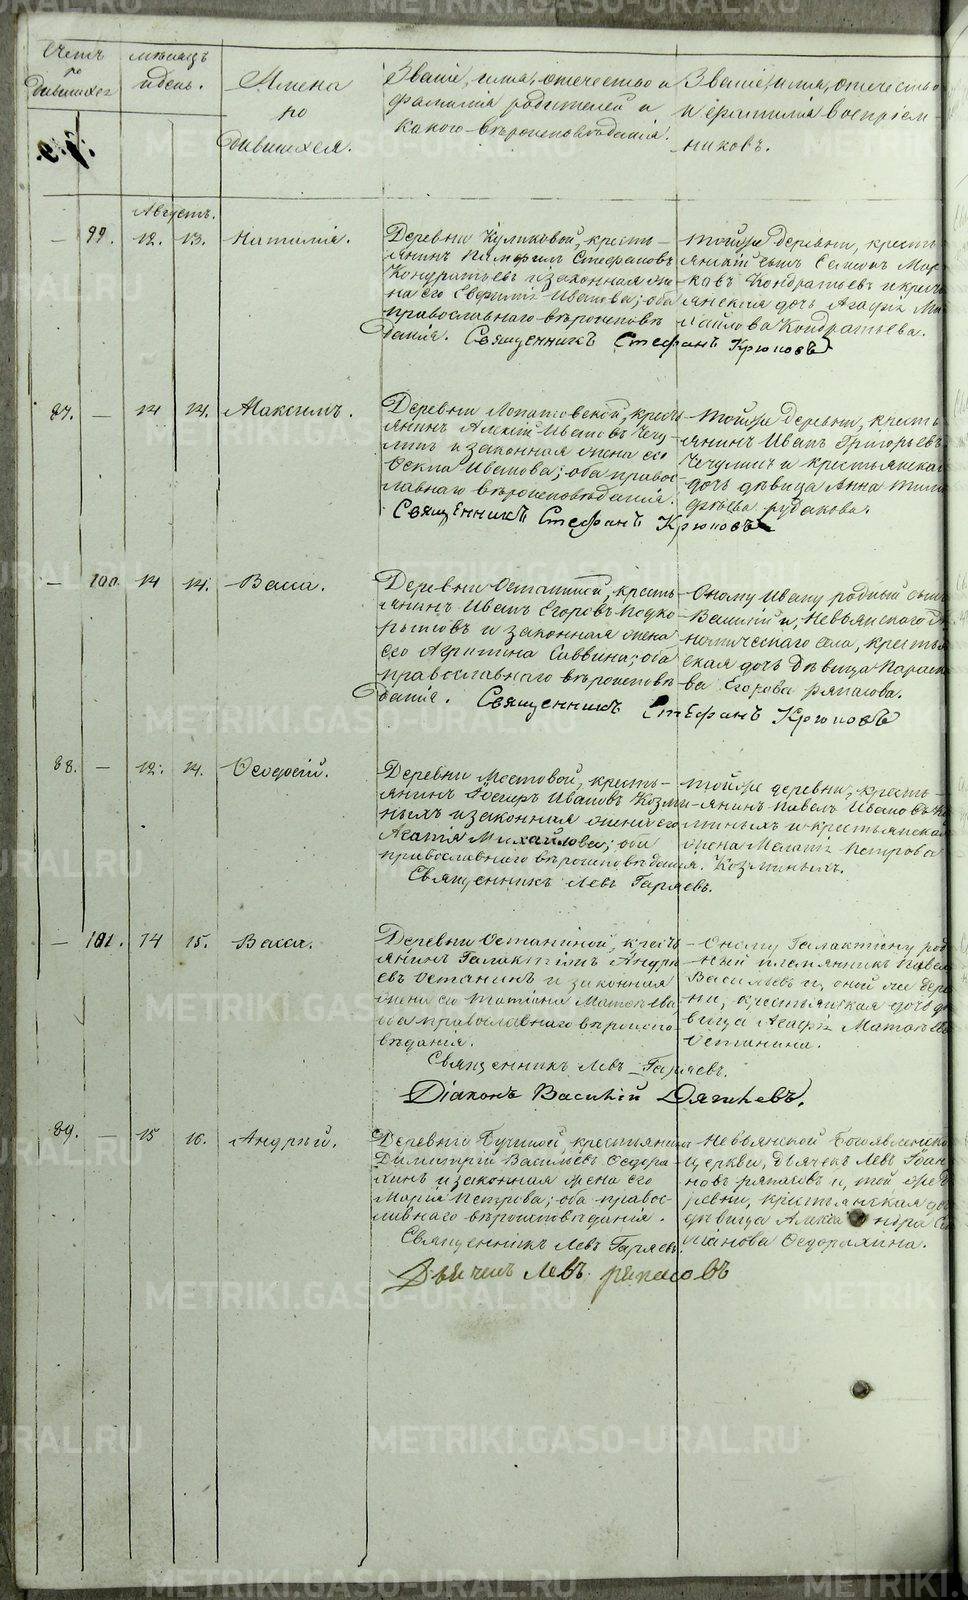 Счетъ по родившихся
мѣсяцъ и день.
Имена родившихся.
Званіе, имя, отечество и
фамилія родителей и
какого вѣроисповѣданія.
Званіе, имя, отечество
и фамилія воспріем-
никовъ.
Августъ.
— 99. 12. 13. Наталія.
Деревни Куликовой, кресть-
янинъ Памфилъ Стефановъ
Кондратьевъ и законная же-
на его Евфимія Иванова; оба
православнаго вѣроисповѣ-
данія. Священникъ Стефанъ Крюковъ
Тойже деревни, кресть-
янскій сынъ Семенъ Мар-
ковъ Кондратьевъ и кресть-
янская дочь Агафья Ми-
хайлова Кондратьева.
87. — 14 14. Максимъ.
Деревни Лопатовской, кресть-
янинъ Алексій Ивановъ Чечу-
линъ и законная жена его
Фекла Иванова; оба правос-
лавнаго вѣроисповѣданія.
Священникъ Стефанъ Крюковъ
Тойже деревни, кресть-
янинъ Иванъ Григорьевъ
Чечулинъ и крестьянская
дочь дѣвица Анна Тимо-
фѣева Рудакова.
— 100. 14 14. Васса.
Деревни Останиной, кресть-
янинъ Иванъ Егоровъ Подко-
рытовъ и законная жена
его Агрипина Саввина; оба
православнаго вѣроисповѣ-
данія. Священникъ Стефанъ Крюковъ
Оному Ивану родный сынъ
Василій и, Невьянского
села, крестьян-
ская дочь дѣвица Параске-
ва Егорова Ряпасова.
88. — 12. 14. Ѳеодосій.
Деревни Мостовой, кресть-
янинъ Ивановъ Козми-
ныхъ и законная жена его
Агафія Михайлова; оба
православнаго вѣроисповѣданія.
Священникъ Левъ Гаряевъ.
Тойже деревни, кресть-
янинъ Павелъ Ивановъ Ко-
зминыхъ и крестьянская
жена Меланія Петрова
Козминыхъ.
— 101. 14 15. Васса.
Деревни Останиной, кресть-
янинъ Галактіонъ Андре-
евъ Останинъ и законная
жена его Татіана Матвѣева,
оба православнаго вѣроиспо-
вѣданія.
Священникъ Левъ Гаряевъ.
Діаконъ Василій Дягилевъ.
Оному Галактіону род-
ный племянникъ Павелъ
Васильевъ и, оной же дере-
вни, крестьянская дочь дѣ-
вица Агафья
Останина.
89. — 15 16. Андрей.
Деревни Бучиной крестьянинъ
Димитрій Васильевъ Ѳедоро-
хинъ и законная жена его
Марія Петрова; оба правос-
лавнаго вѣроисповѣданія.
Священникъ Левъ Гаряевъ.
Дьячекъ Левъ Ряпасовъ
Невьянской Богоявленской
церкви, дьячекъ Левъ Іоан-
новъ Ряпасовъ и, той же де-
ревни, крестьянская дочь
дѣвица Александра
Ѳедорахина.
METRIKI.GASO-URAL.RU